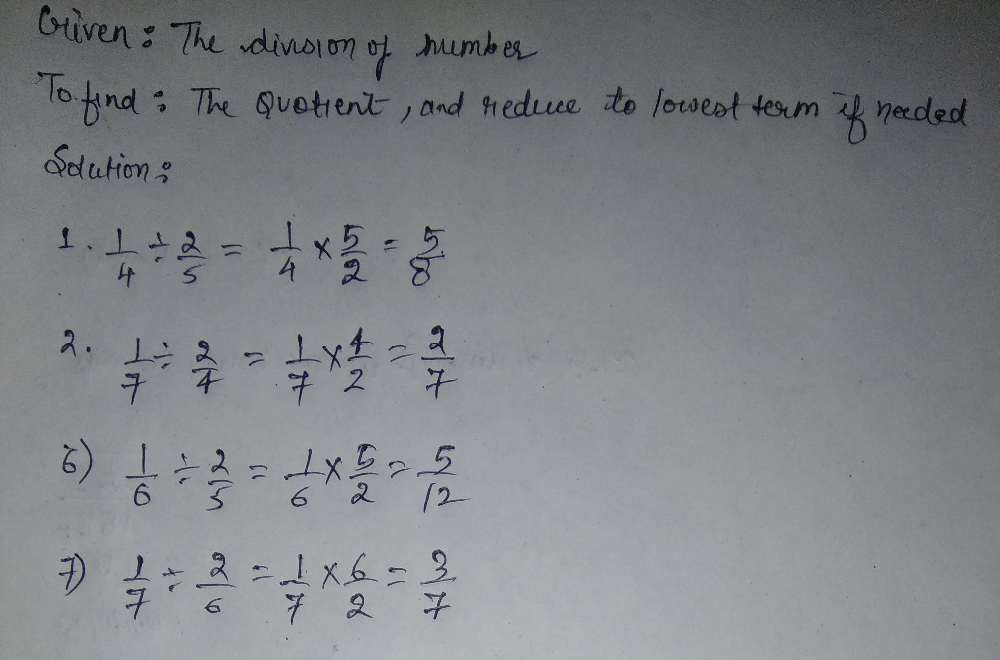 Given: The division of number
To find: The Quotient, and reduce to lowest term if needed
Solution:
1. 1/4 ÷ 2/5 = 1/4 × 5/2 = 5/8
2. 1/7 ÷ 2/4 = 1/7 × 4/2 = 2/7
6) 1/6 ÷ 2/5 = 1/6 × 5/2 = 5/12
7) 1/7 ÷ 2/6 = 1/7 × 6/2 = 3/7